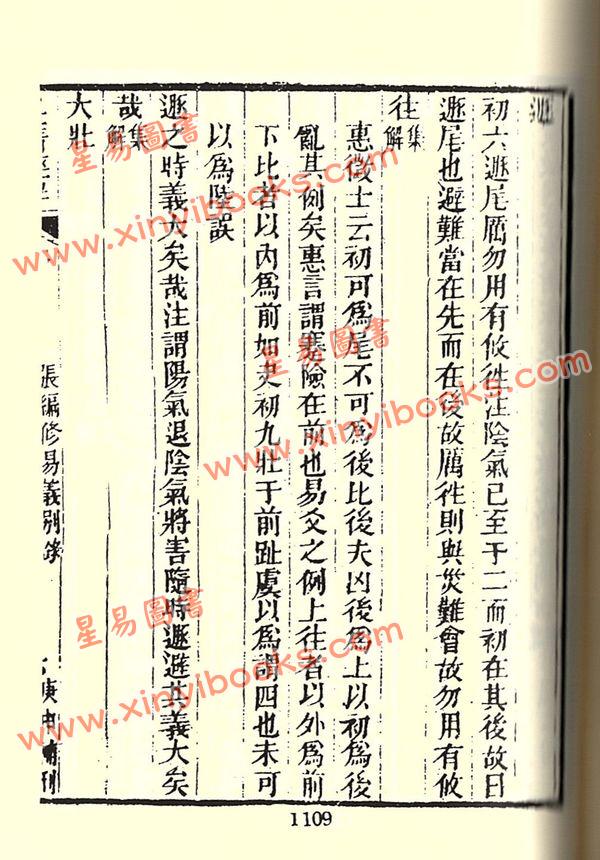 遯
初六遯尾厲勿用有攸往注陰氣已至于二而初在其後故曰
遯尾也避難當在先而在後故厲往則與災難會故勿用有攸
往集解
惠徵士云初可爲尾不可爲後比後夫凶後爲上以初爲後
亂其例矣惠言謂蹇險在前也易爻之例上往者以外爲前
下比者以內爲前如夬初九壯于前趾虞以爲謂四也未可
以爲陸誤
遯之時義大矣哉注謂陽氣退陰氣將害隨時遯避其義大矣
哉集解
大壯
張編修易義別錄
庚申補刊
1109
星易圖書
www.xinyibooks.com
星易圖書
www.xinyibooks.com
星易圖書
www.xinyibooks.com